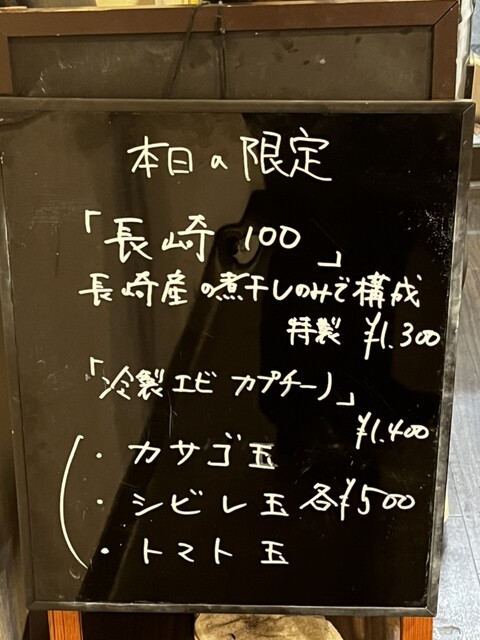 本日の限定
「長崎 100」
長崎産の煮干しのみで構成
特製 ¥1.300
「冷製エビ カプチーノ」
¥1.400
・カサゴ玉
・シビレ玉 各¥500
・トマト玉